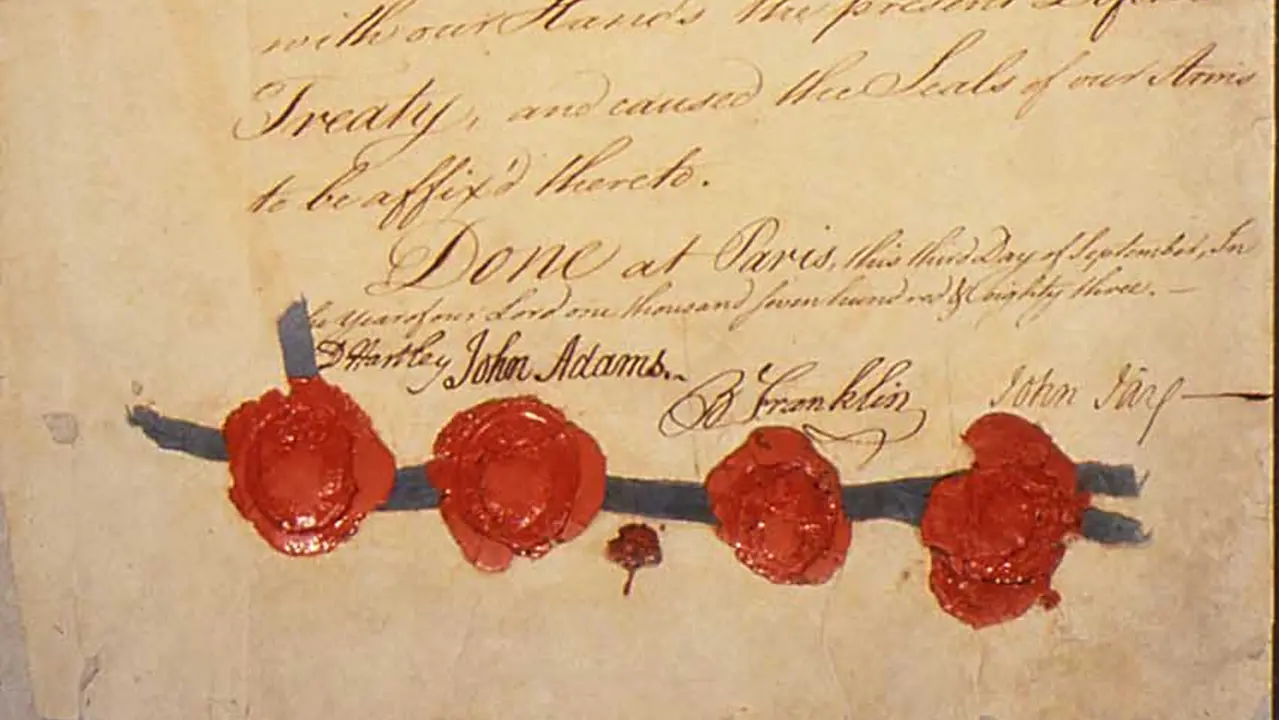 with our Hands the present Defin
Treaty, and caused the Seals of our Arms
to be affix'd thereto.
Done at Paris, this third Day of September, In
he Year of our Lord one thousand seven hundred & eighty three.—
D Hartley John Adams. B Franklin John Jay—